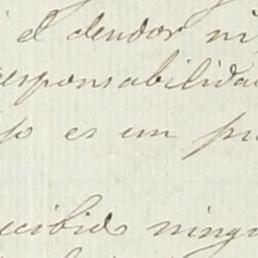 el deudor ni
responsabilidad
es un
recibido ningu